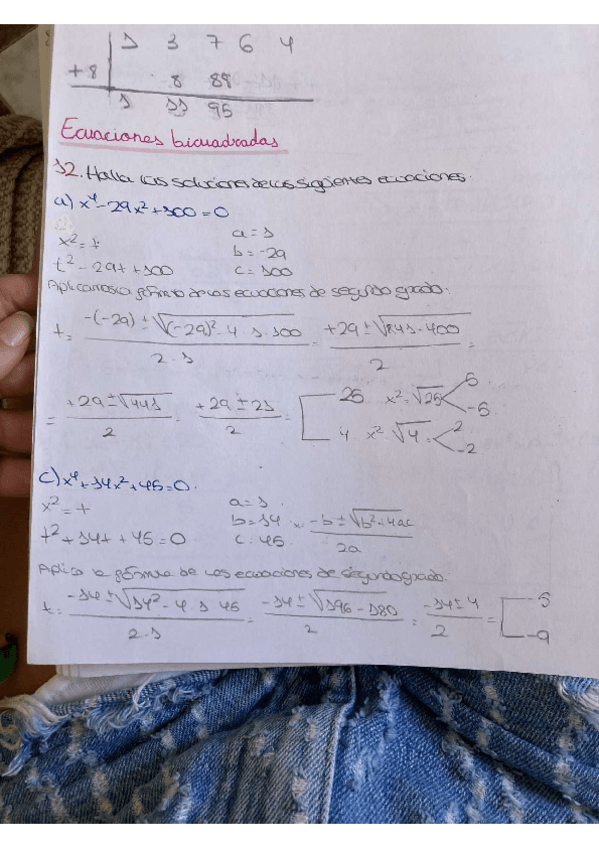 1 3 7 6 4
+8 8 88
1 11 95
Ecuaciones bicuadradas
12. Halla las soluciones de las siguientes ecuaciones:
a) x⁴-29x²+100=0
x²=t a=1
t²-29t+100 b=-29
c=100
Aplicamos la fórmula de las ecuaciones de segundo grado:
t= (-(-29)±√((-29)²-4·1·100))/(2·1) = (+29±√(841-400))/2 =
= (+29±√441)/2 = (+29±21)/2 = 25 x²=√25 5 -5
4 x²=√4= 2 -2
c) x⁴+14x²+45=0.
x²=t a=1
t²+14t+45=0 b=14 x= (-b±√(b²-4ac))/2a
c=45
Aplico la fórmula de las ecuaciones de segundo grado.
t= (-14±√(14²-4·1·45))/(2·1) = (-14±√(196-180))/2 = (-14±4)/2 = -5 -9